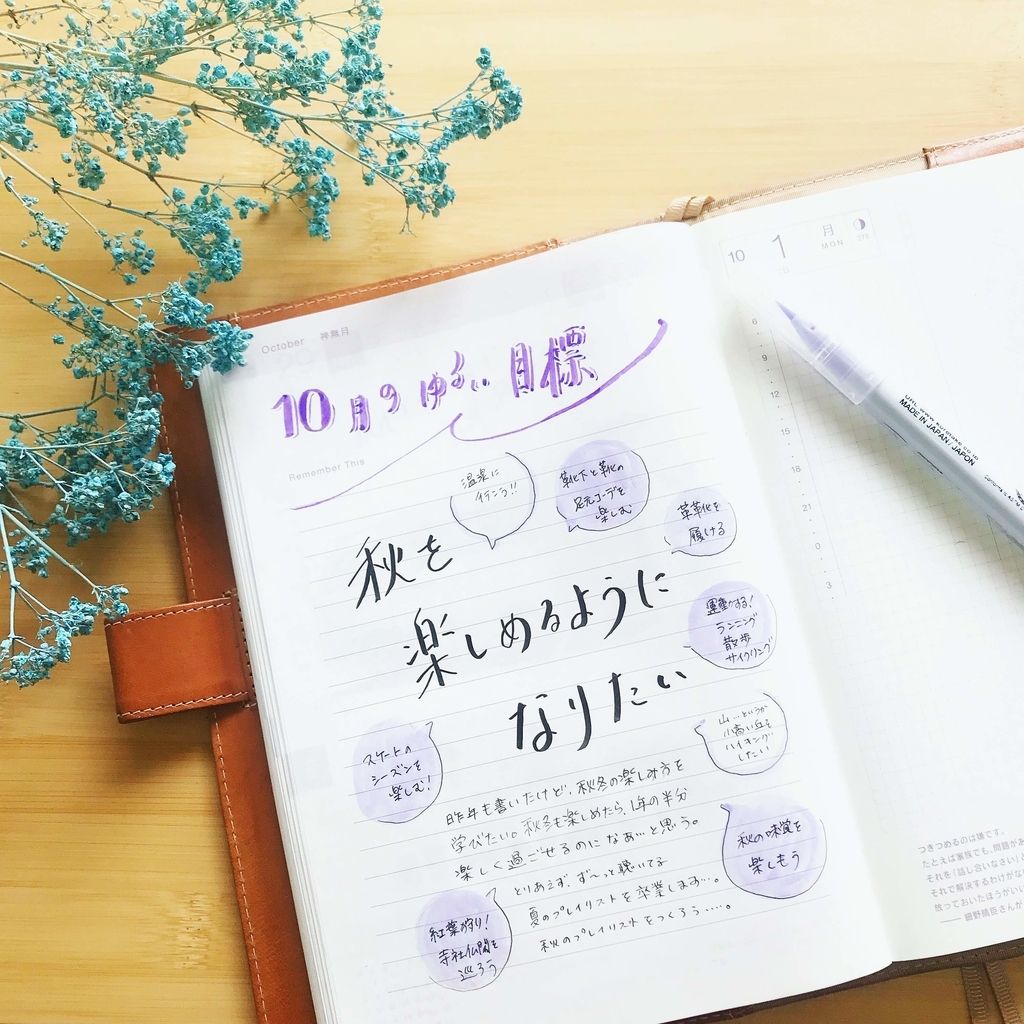 October 神無月
10月のゆるい目標
Remember This
温泉に
行こう!!
靴下と靴の
足元コーデを
楽しむ
革靴を
履ける
秋を
楽しめるように
なりたい
運動する!
ランニング
散歩
サイクリング
山…というか
小高い丘を
ハイキング
したい
スケートの
シーズンを
楽しむ!
昨年も書いたけど、秋冬の楽しみ方を
学びたい。秋冬も楽しめたら、1年の半分
楽しく過ごせるのになあ…と思う。
とりあえず、ず〜っと聴いてる
夏のプレイリストを卒業します…。
秋のプレイリストをつくろう……。
秋の味覚を
楽しもう
紅葉狩り!
寺社仏閣を
巡ろう
10 1 月
MON
6
9
12
15
18
21
0
3
MADE IN JAPAN / JAPON
つきつめるのは嫌です。
たとえば家族でも、問題があ
それを「話し合いなさい」
それで解決するわけがな
放っておいたほうがいい